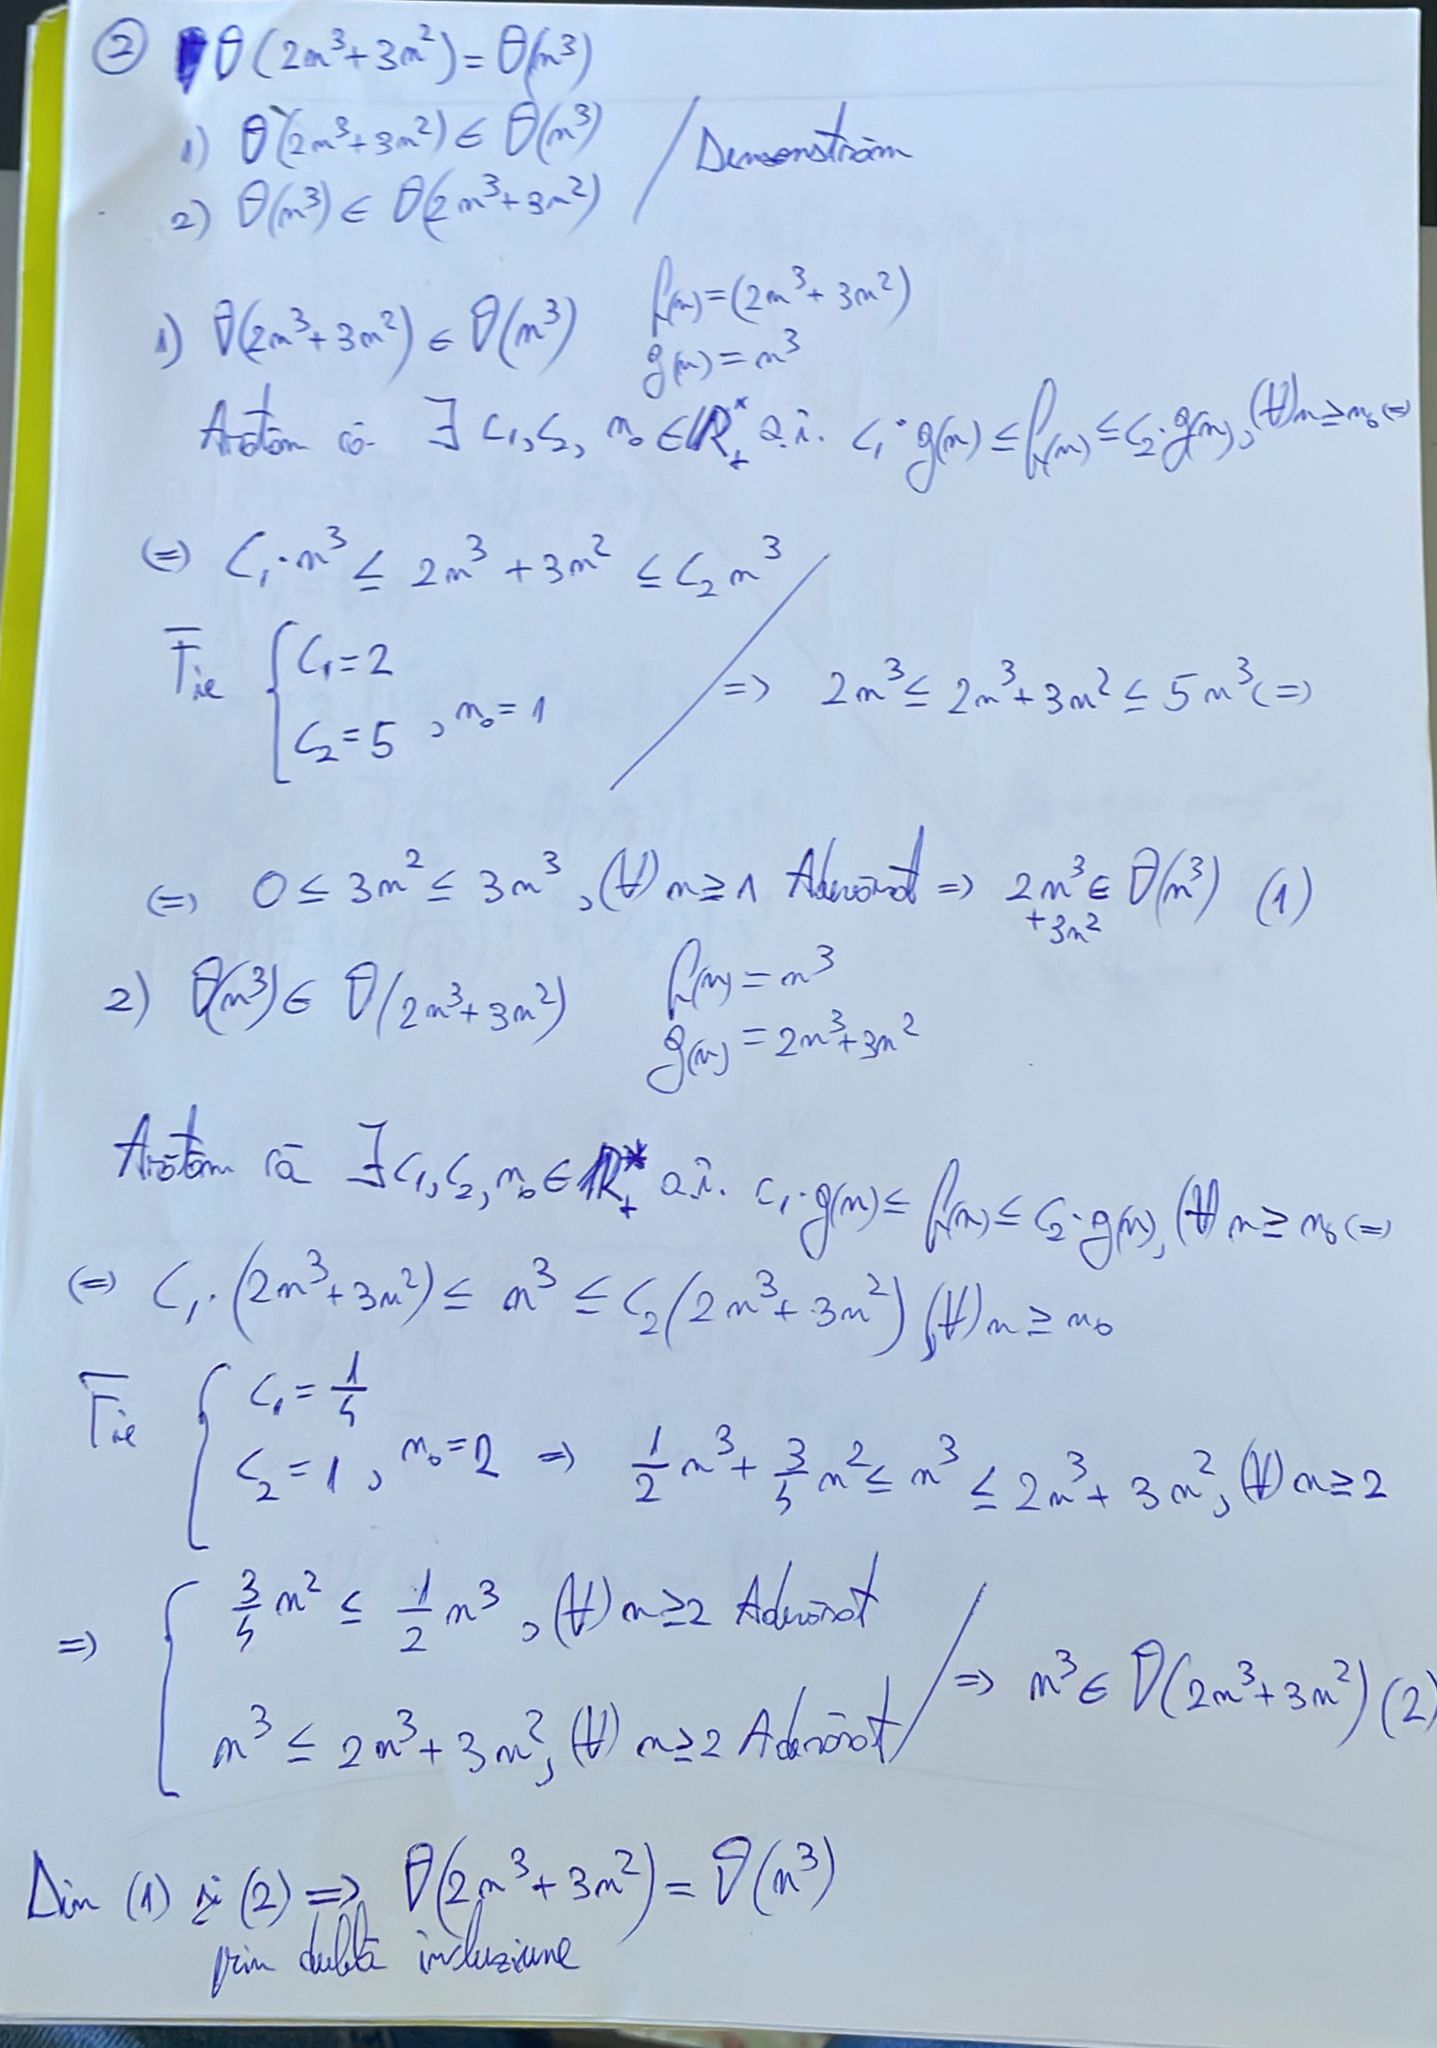 ② θ(2n³+3n²)=θ(n³)
1) θ(2n³+3n²) ∈ θ(n³)
2) θ(n³) ∈ θ(2n³+3n²) / Demonstrăm
1) θ(2n³+3n²) ∈ θ(n³) f(n)=(2n³+3n²)
g(n)=n³
Arătăm că ∃ C₁,C₂, n₀ ∈ ℝ₊* a.î. C₁·g(n) ≤ f(n) ≤ C₂·g(n), (∀) n ≥ n₀ (=)
(=) C₁·n³ ≤ 2n³+3n² ≤ C₂n³
Fie { C₁=2
C₂=5 , n₀=1 / => 2n³ ≤ 2n³+3n² ≤ 5n³ (=)
(=) 0 ≤ 3n² ≤ 3n³, (∀) n ≥ 1 Adevărat => 2n³+3n² ∈ θ(n³) (1)
2) θ(n³) ∈ θ(2n³+3n²) f(n)=n³
g(n)=2n³+3n²
Arătăm că ∃ C₁,C₂, n₀ ∈ ℝ₊* a.î. C₁·g(n) ≤ f(n) ≤ C₂·g(n), (∀) n ≥ n₀ (=)
(=) C₁·(2n³+3n²) ≤ n³ ≤ C₂(2n³+3n²), (∀) n ≥ n₀
Fie { C₁=1/4
C₂=1 , n₀=2 => 1/2 n³ + 3/4 n² ≤ n³ ≤ 2n³+3n², (∀) n ≥ 2
=> { 3/4 n² ≤ 1/2 n³, (∀) n ≥ 2 Adevărat
n³ ≤ 2n³+3n², (∀) n ≥ 2 Adevărat / => n³ ∈ θ(2n³+3n²) (2)
Din (1) și (2) => θ(2n³+3n²)=θ(n³)
prin dublă incluziune